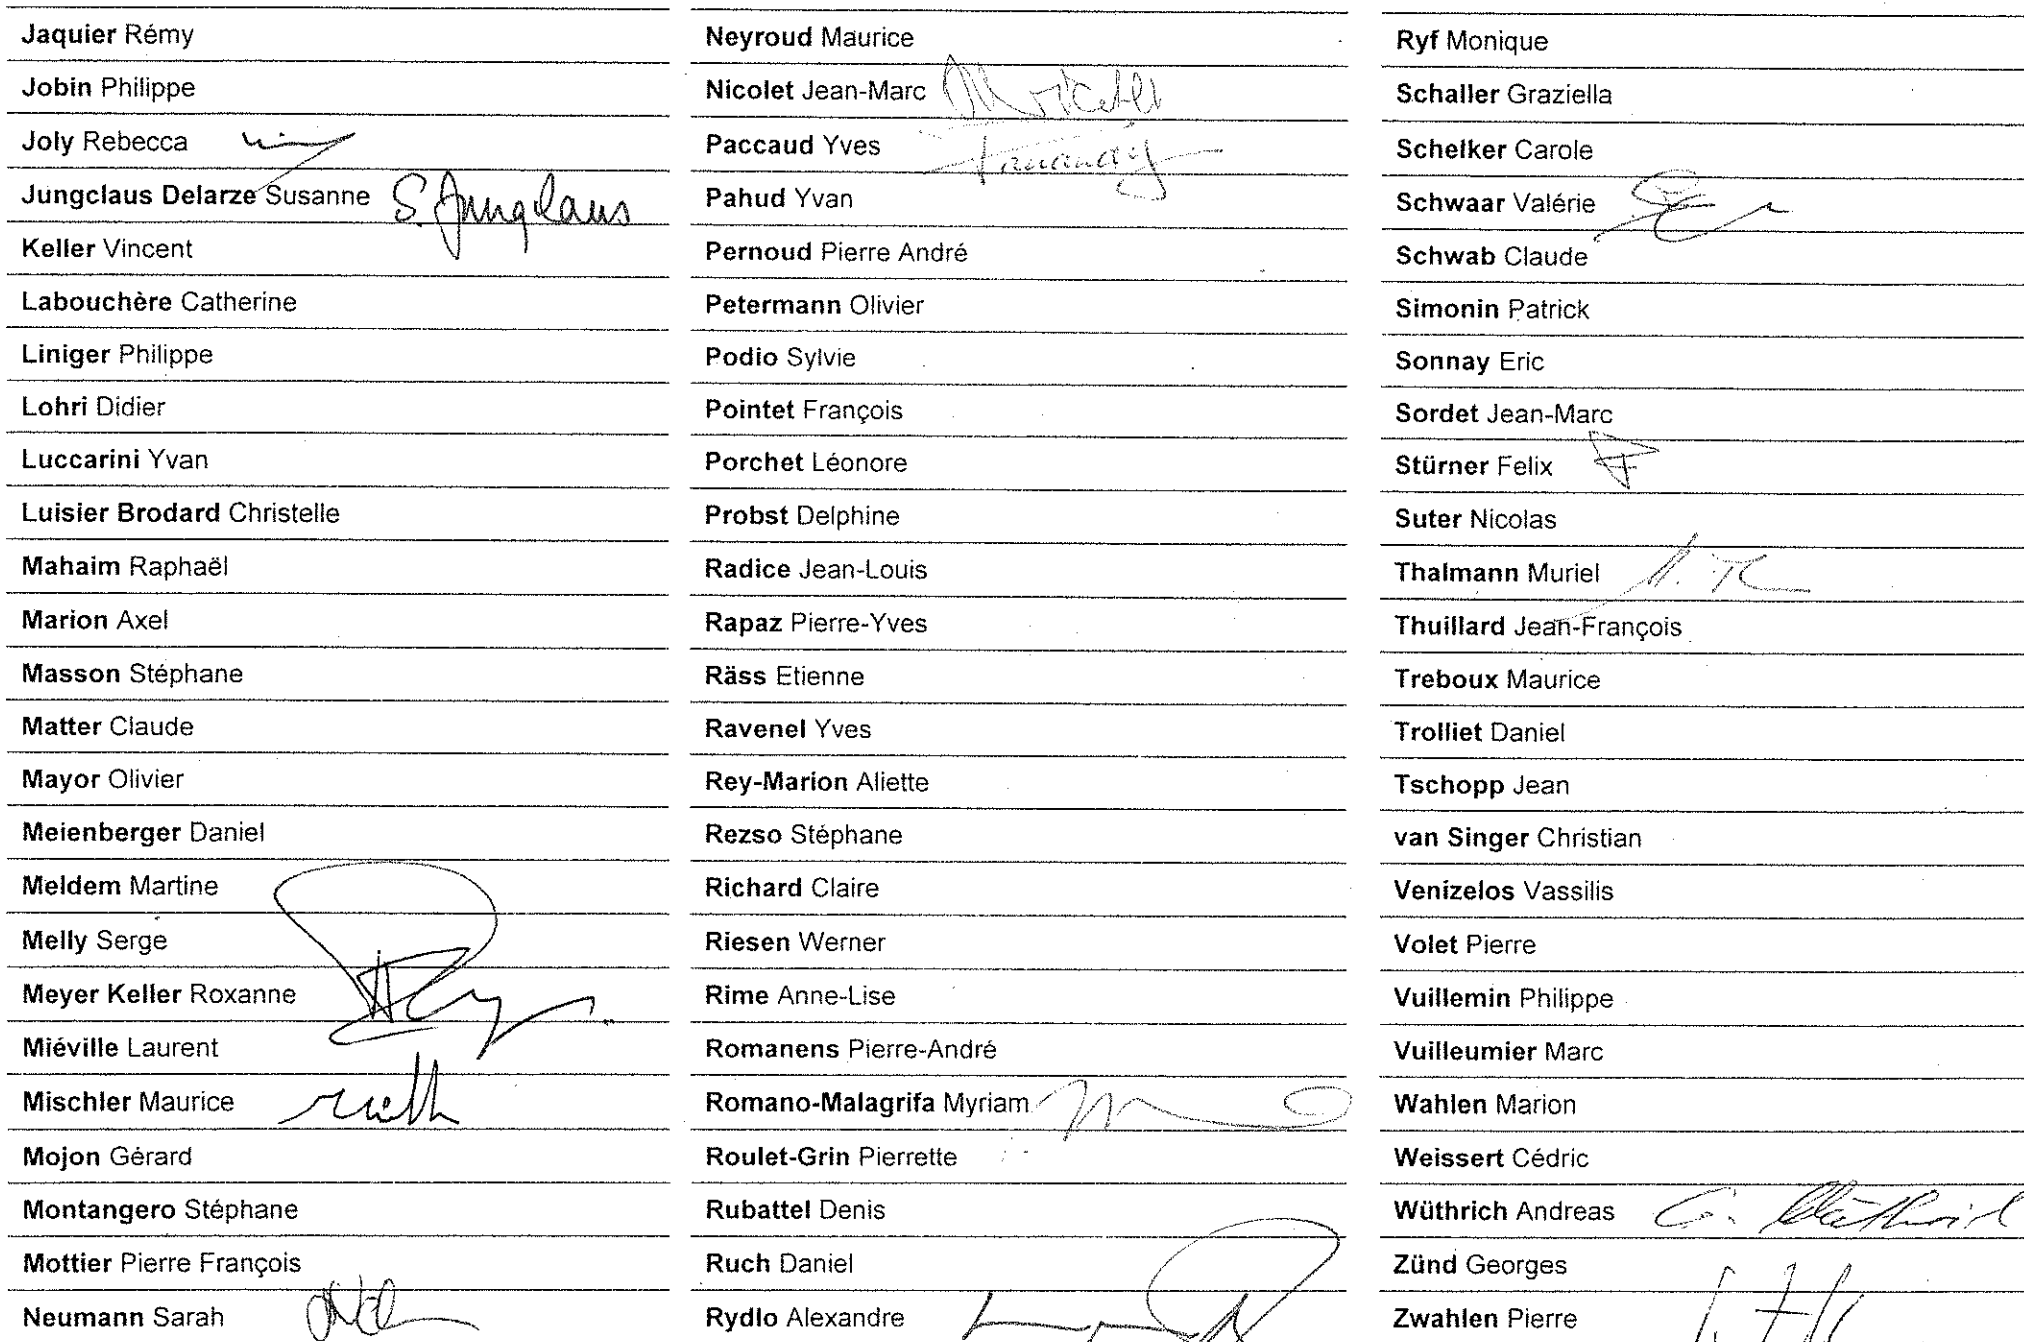 Jaquier Rémy
Jobin Philippe
Joly Rebecca
Jungclaus Delarze Susanne S. Jungclaus
Keller Vincent
Labouchère Catherine
Liniger Philippe
Lohri Didier
Luccarini Yvan
Luisier Brodard Christelle
Mahaim Raphaël
Marion Axel
Masson Stéphane
Matter Claude
Mayor Olivier
Meienberger Daniel
Meldem Martine
Melly Serge
Meyer Keller Roxanne
Miéville Laurent
Mischler Maurice
Mojon Gérard
Montangero Stéphane
Mottier Pierre François
Neumann Sarah
Neyroud Maurice
Nicolet Jean-Marc
Paccaud Yves
Pahud Yvan
Pernoud Pierre André
Petermann Olivier
Podio Sylvie
Pointet François
Porchet Léonore
Probst Delphine
Radice Jean-Louis
Rapaz Pierre-Yves
Räss Etienne
Ravenel Yves
Rey-Marion Aliette
Rezso Stéphane
Richard Claire
Riesen Werner
Rime Anne-Lise
Romanens Pierre-André
Romano-Malagrifa Myriam
Roulet-Grin Pierrette
Rubattel Denis
Ruch Daniel
Rydlo Alexandre
Ryf Monique
Schaller Graziella
Schelker Carole
Schwaar Valérie
Schwab Claude
Simonin Patrick
Sonnay Eric
Sordet Jean-Marc
Stürner Felix
Suter Nicolas
Thalmann Muriel
Thuillard Jean-François
Treboux Maurice
Trolliet Daniel
Tschopp Jean
van Singer Christian
Venizelos Vassilis
Volet Pierre
Vuillemin Philippe
Vuilleumier Marc
Wahlen Marion
Weissert Cédric
Wüthrich Andreas
Zünd Georges
Zwahlen Pierre